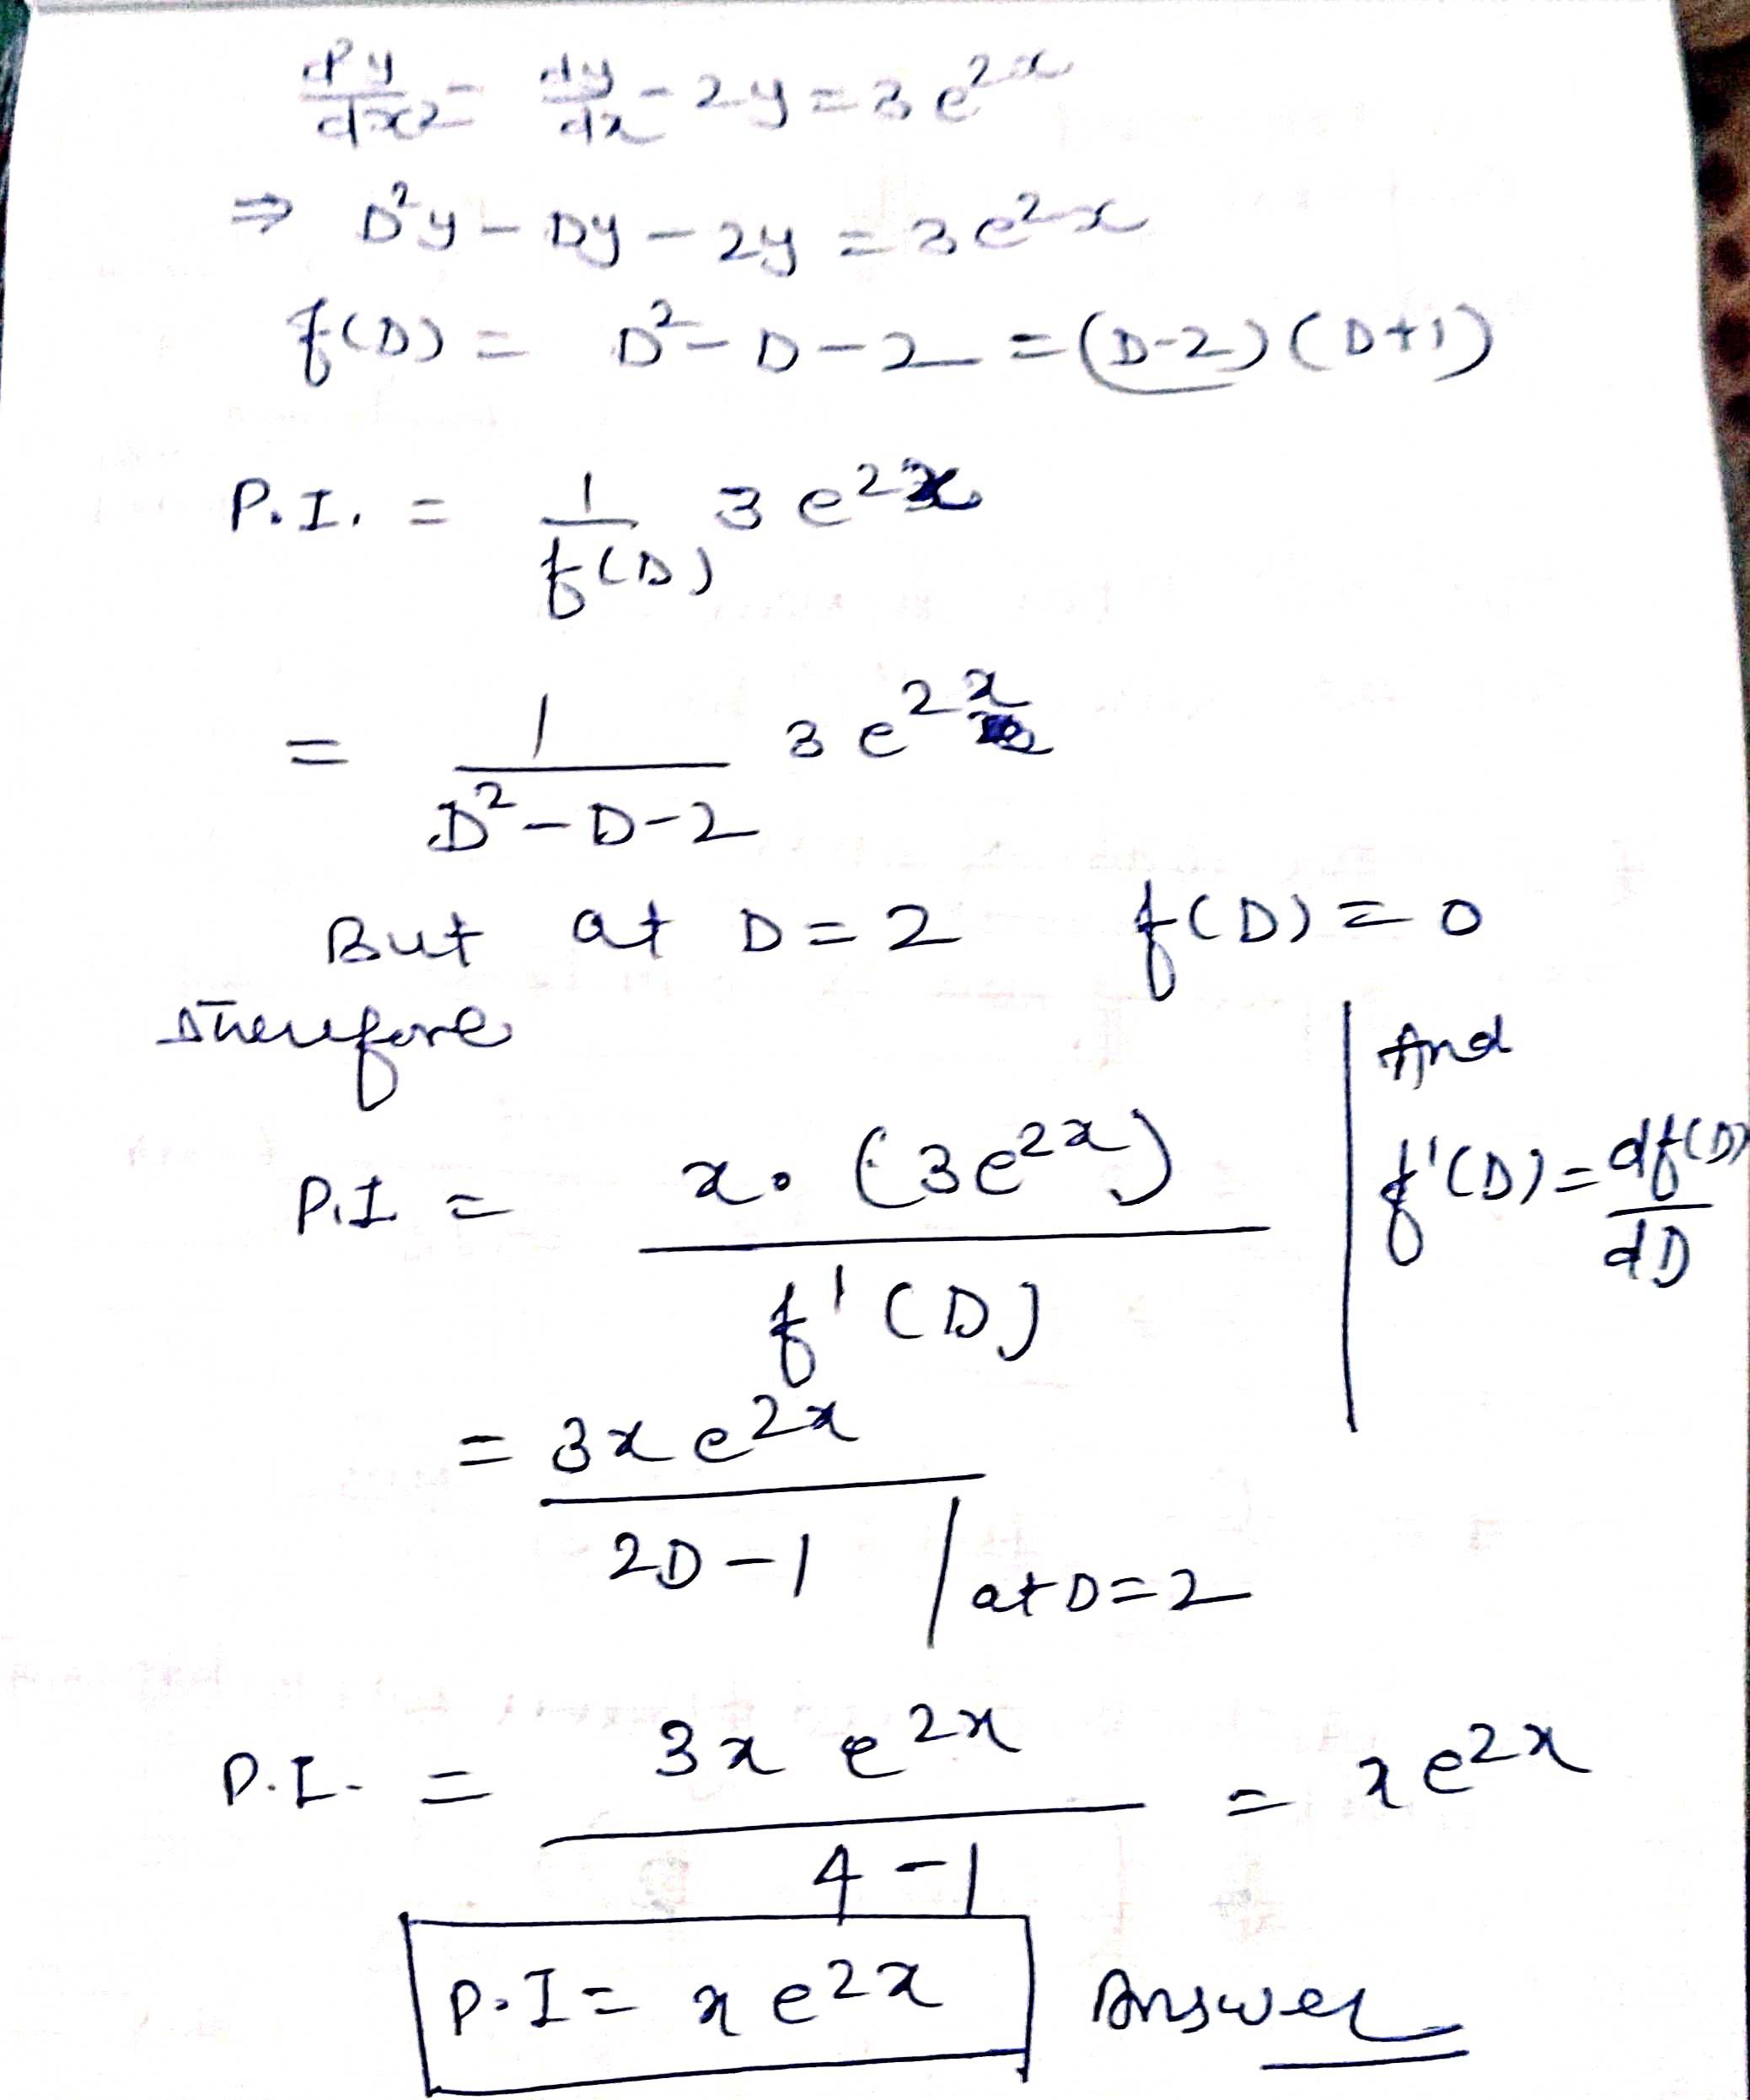 d²y/dx² - dy/dx - 2y = 3e^{2x}
⇒ D²y - Dy - 2y = 3e^{2x}
f(D) = D² - D - 2 = (D-2)(D+1)
P.I. = 1/f(D) 3e^{2x}
= 1/(D² - D - 2) 3e^{2x}
But at D = 2 f(D) = 0
Therefore
And
P.I = x. (3e^{2x}) / f'(D)
f'(D) = df(D)/dD
= 3xe^{2x} / (2D - 1) | at D = 2
P.I. = 3x e^{2x} / (4 - 1) = xe^{2x}
P.I = xe^{2x} Answer